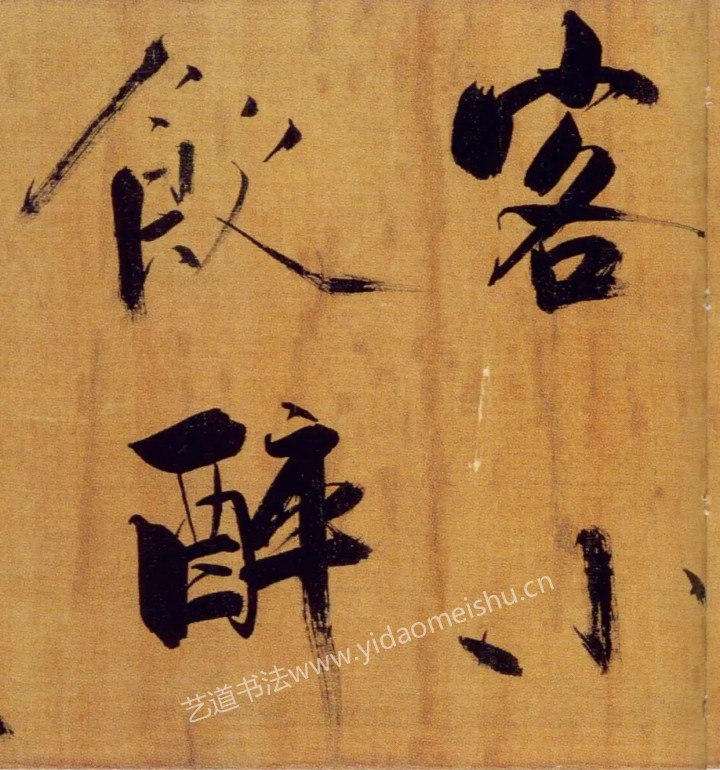 客小
飲醉
艺道书法www.yidaomeishu.cn